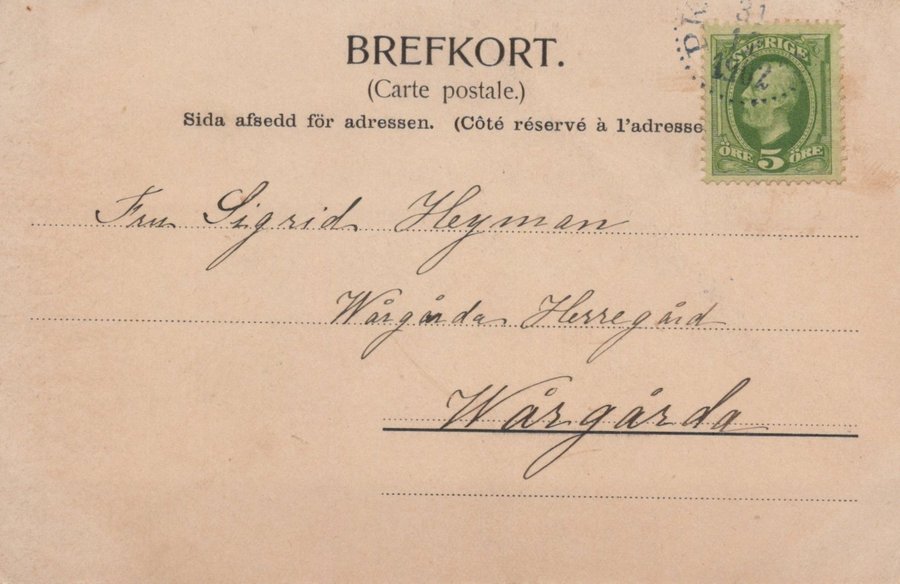 BREFKORT.
(Carte postale.)
Sida afsedd för adressen. (Côté réservé à l'adresse
SVERIGE
ÖRE 5 ÖRE
31
1902
Fru Sigrid Heyman
Wårgårda Herregård
Wårgårda